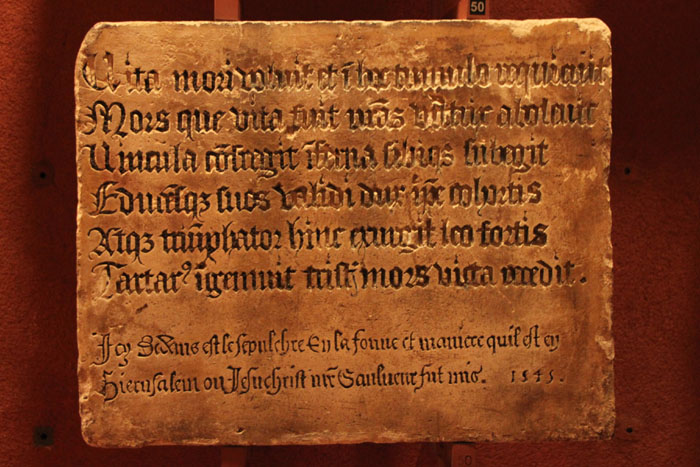 50
Vita mori voluit et ī hoc tumulo requieuit
Mors que vita fuit aboleuit
Vincula cōfregit īferna sibiqz subegit
suos validi dux ip̄e cohortis
Atqz triūphator hinc exurgit leo fortis
Tartarꝰ īgemuit mors victa recedit.
Icy Dedens est le sepulchre En la forme et maniere quil est en
Hierusalem ou Jesuchrist nr̄e Saulueur fut mis. 1545.
50